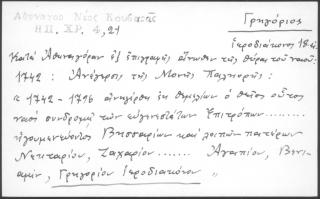 Ἀθηναγόρας Νέος Κουβαρᾶς
ΗΠ. ΧΡ. 4, 21
Γρηγόριος
Ἱεροδιάκονος 18
Κατὰ Ἀθηναγόραν ἐξ ἐπιγραφῆς ἄνωθεν τῆς θύρας τοῦ ναοῦ:
1742: Ἀνέγερσις τῆς Μονῆς
"1742 - 1796 ἀνηγέρθη ἐκ θεμελίων ὁ θεῖος οὗτος
ναὸς συνδρομῇ τῶν εὐγενεστάτων Ἐπιτρόπων........
ἡγουμενεύοντος Βησσαρίων καὶ λοιπῶν πατέρων
Νεκταρίου, Ζαχαρίου ........ Ἀγαπίου, Βενι-
αμίν, Γρηγορίου Ἱεροδιακόνου "